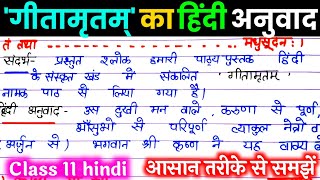 'गीतामृतम्' का हिंदी अनुवाद
तं तथा मधुसूदनः।
संदर्भ- प्रस्तुत श्लोक हमारी पाठ्य पुस्तक हिंदी
के संस्कृत खंड में संकलित 'गीतामृतम्'
नामक पाठ से लिया गया है।
हिंदी अनुवाद- उस दुखी मन वाले, करुणा से पूर्ण,
आँसुओं से परिपूर्ण व्याकुल नेत्रों व
अर्जुन से) भगवान श्री कृष्ण ने यह वाक्य
Class 11 hindi
आसान तरीके से समझें